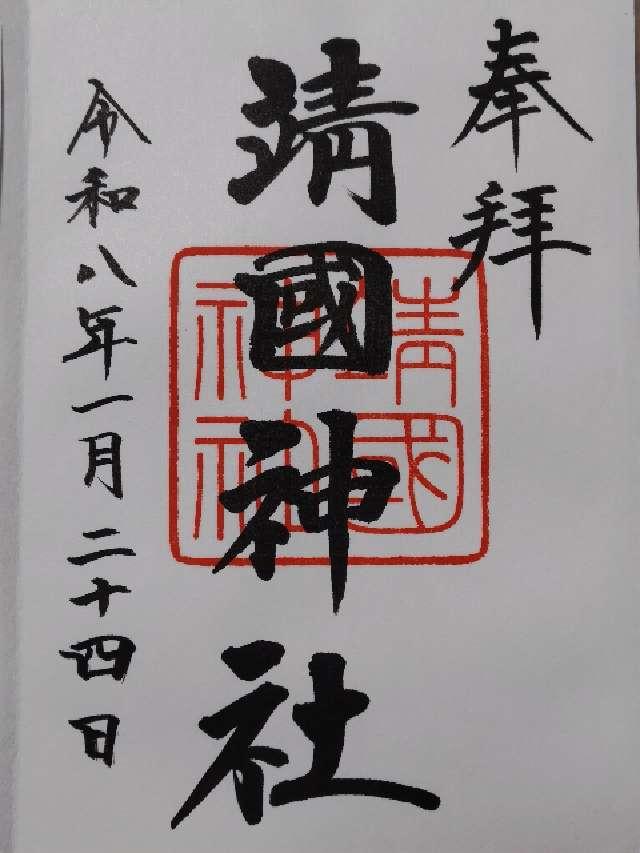 奉拝
靖國神社
靖國神社
令和八年一月二十四日